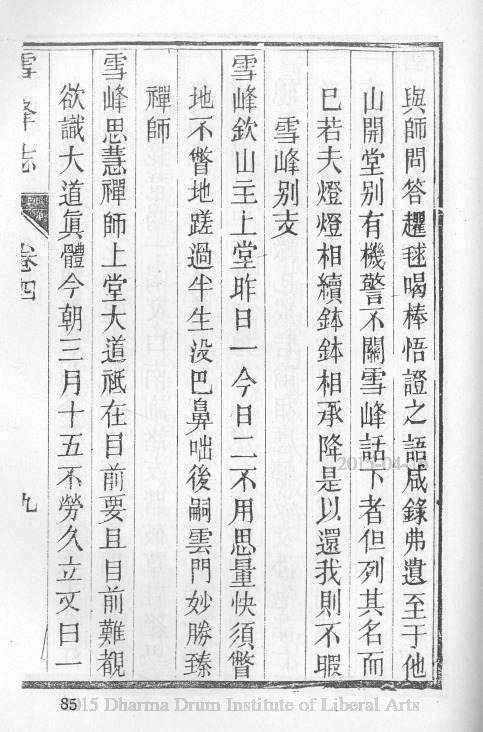 與師問答趯毬喝棒悟證之語咸錄弗遺至于他
山開堂別有機警不關雪峰話下者但列其名而
已若夫燈燈相續鉢鉢相承降是以還我則不暇
雪峰別支
雪峰欽山主上堂昨日一今日二不用思量快須瞥
地不瞥地蹉過半生沒巴鼻咄後嗣雲門妙勝臻
禪師
雪峰思慧禪師上堂大道祗在目前要且目前難覩
欲識大道眞體今朝三月十五不勞久立又曰一
雪峰志 卷四 九
85
2015-04-
2015 Dharma Drum Institute of Liberal Arts